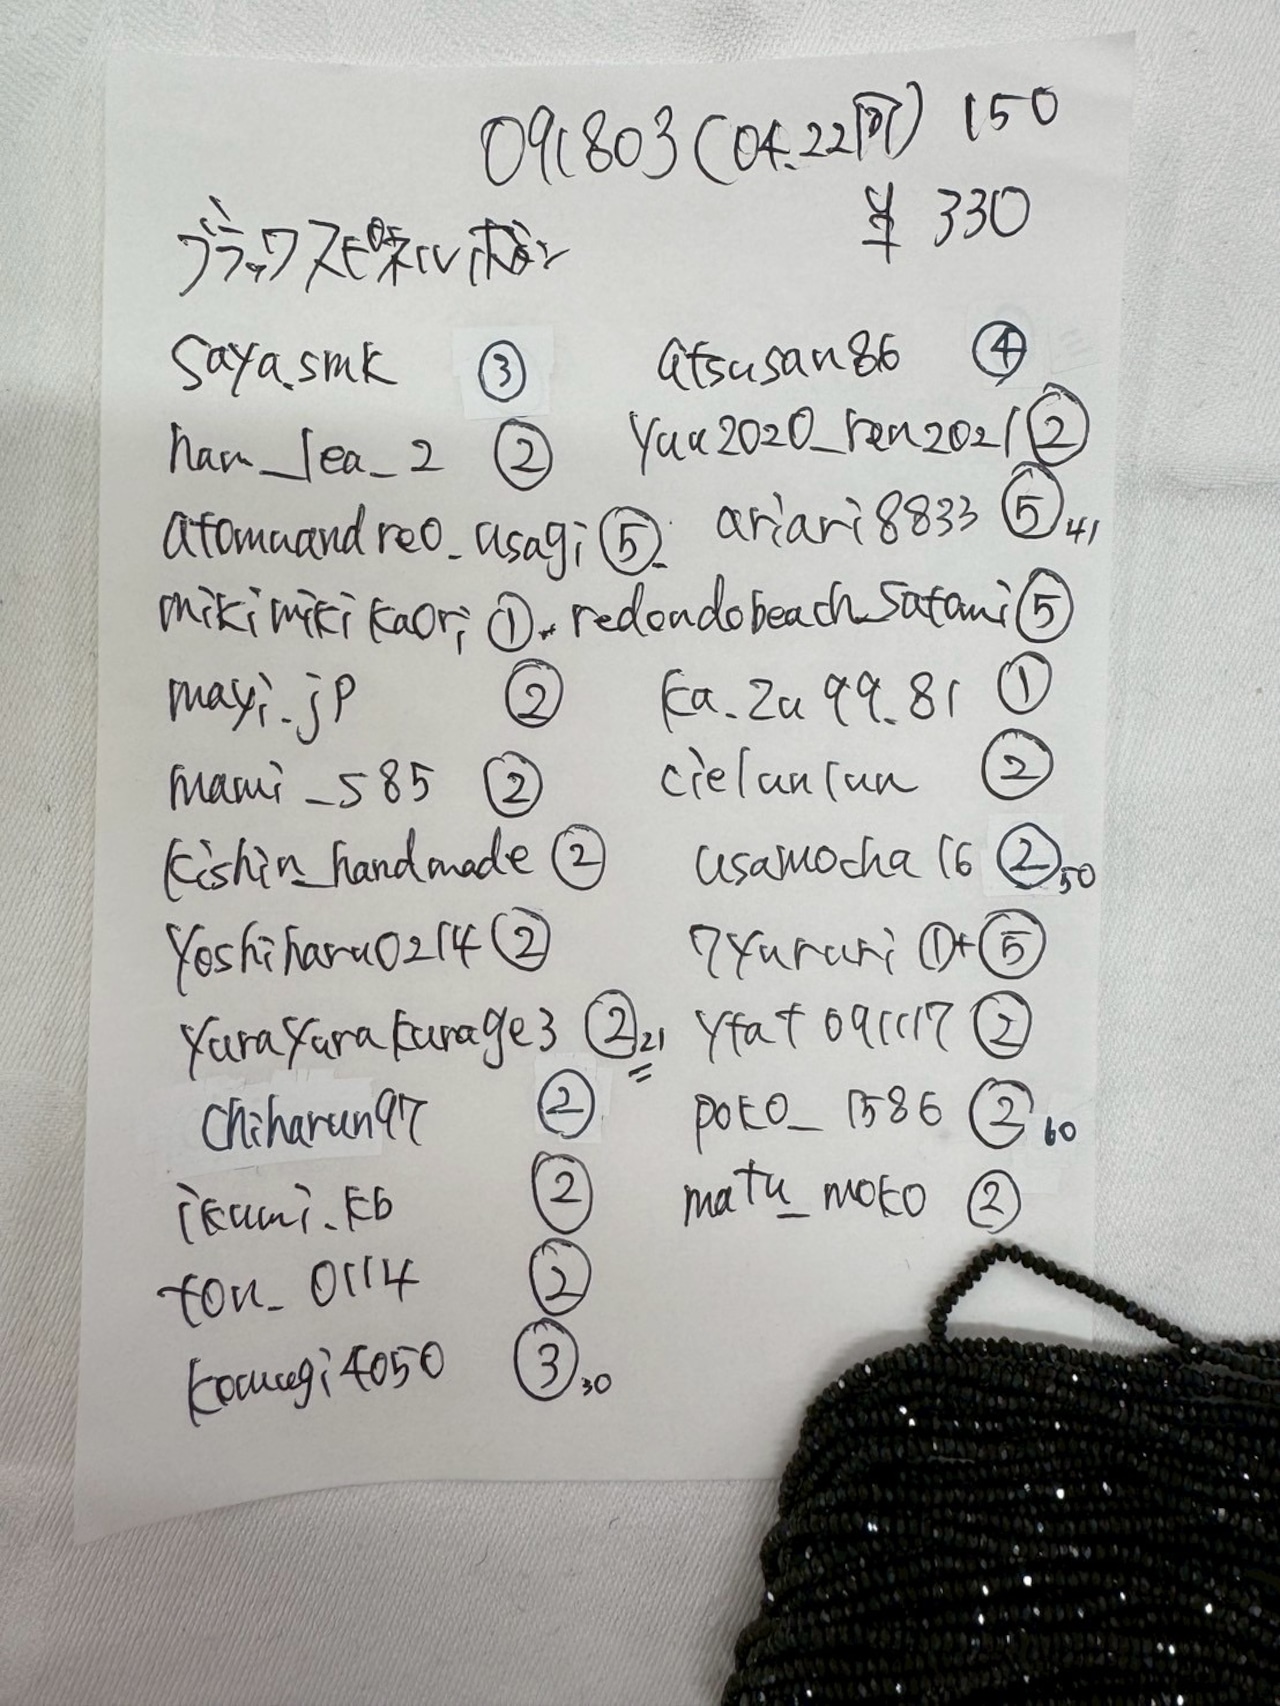 091803(04.22同) 150
¥ 330
ブラックスピネルボタン
saya.smk ③
han_lea_2 ②
atomuandreo_usagi ⑤
mikimikikaori ①
mayi.jp ②
mami_585 ②
kishin_handmade ②
yoshiharu0214 ②
yurayurakurage3 ② 21
chiharun97 ②
ikumi.kb ②
ton_0114 ②
komugi4050 ③ 30
atsusan86 ④
yuu2020_ren2021 ②
ariari8833 ⑤ 41
redondobeach_satomi ⑤
ka_zu99.81 ①
cielunlun ②
usamocha16 ② 50
7yururi ①+⑤
ytat091117 ②
poko_1586 ② 60
matu_moko ②